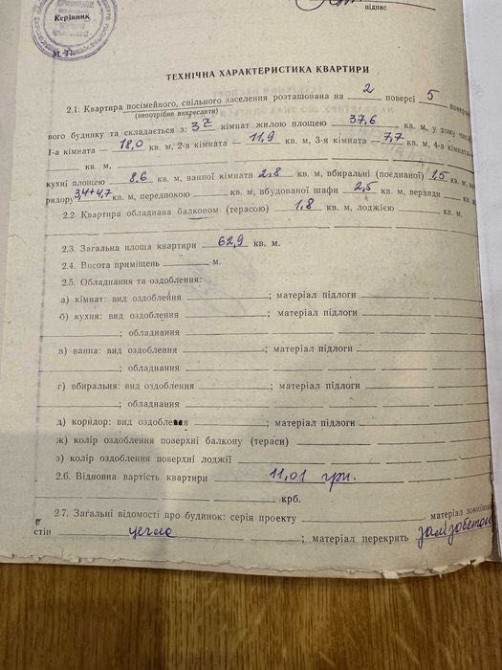 Керівник
підпис
ТЕХНІЧНА ХАРАКТЕРИСТИКА КВАРТИРИ
2.1. Квартира посімейного, спільного заселення розташована на 2 поверсі 5
(непотрібне викреслити)
вого будинку та складається з: 3х кімнат жилою площею 37,6 кв. м, у тому
1-а кімната — 18,0 кв. м, 2-а кімната — 11,9 кв. м, 3-я кімната — 7,7 кв. м, 4-а кімната
кв. м,
кухні площею 8,6 кв. м, ванної кімнати 2,8 кв. м, вбиральні (поєднаної) 1,5 кв. м,
ридору 3,4+4,7 кв. м, передпокою кв. м, вбудованої шафи 2,5 кв. м, веранди кв.
2.2 Квартира обладнана балконом (терасою) 1.8 кв. м, лоджією кв. м.
2.3. Загальна площа квартири 62,9 кв. м.
2.4. Висота приміщень м.
2.5. Обладнання та оздоблення:
а) кімнат: вид оздоблення ; матеріал підлоги
б) кухня: вид оздоблення ; матеріал підлоги
; обладнання
в) ванна: вид оздоблення ; матеріал підлоги
; обладнання
г) вбиральня: вид оздоблення ; матеріал підлоги
; обладнання
д) коридор: вид оздоблення ; матеріал підлоги
ж) колір оздоблення поверхні балкону (тераси)
з) колір оздоблення поверхні лоджії
2.6. Відновна вартість квартири 11,01 грн.
крб.
2.7. Загальні відомості про будинок: серія проекту матеріал
стін цегла ; матеріал перекрить